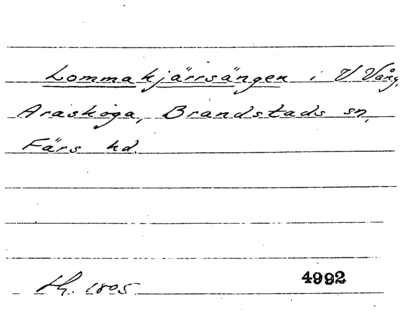 Lommakjärrsängen i V Vång,
Araskoga, Brandstads sn,
Färs hd.
1805 4992